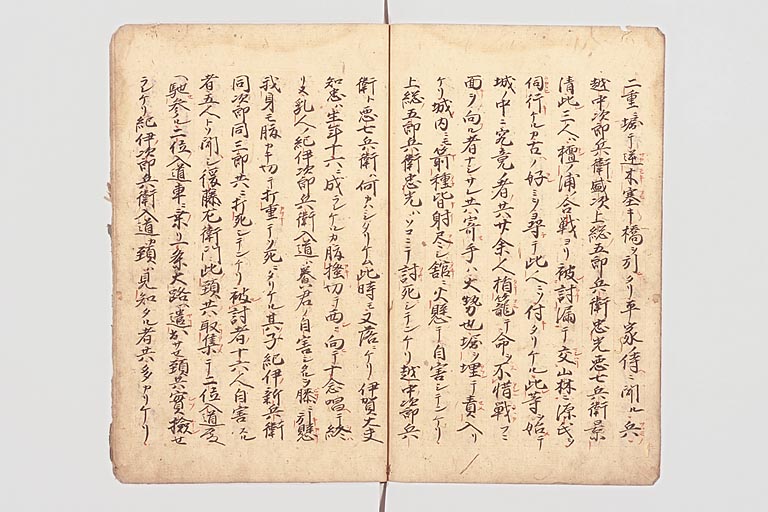 二重堀テ逆木塞キ橋ヲ引タリ平家ノ侍ニ聞ル兵ニ
越中次郎兵衛盛次上総五郎兵衛忠光悪七兵衛景
清此三人ハ檀ノ浦合戦ヨリ被討漏テ交山林ニ源氏ヲ
伺行ケルカ古ノ好ミヲ尋テ此人ニソ付タリケル此等ヲ始テ
城中ニ究竟ノ者共廿余人楯籠テ命ヲ不惜戦フニ
面ヲ向ル者ナシサレ共寄手ハ大勢也堀ヲ埋テ責入リ
ケリ城内ニモ箭種皆射尽シ館ニ火懸テ自害シテンケリ
上総五郎兵衛忠光ハソコニテ討死シテンケリ越中次郎兵
衛ト悪七兵衛ハ何カシタリケム此時モ又落ニケリ伊賀大夫
知忠ハ生年十六ニ成ラレケルカ腹掻切テ西ニ向テ十念唱テ終
リヌ乳人ノ紀伊次郎兵衛入道ハ養君ノ自害シタルヲ膝ニ引懸
我身モ腹カキ切テ打重テソ死ニタリケル其子紀伊新兵衛
同次郎同三郎共ニ打死シテンケリ被討者十六人自害シタル
者五人トソ聞シ後藤左衛門此頸共取集テ二位入道屋
ヘ馳参ル二位入道車ニ乗リ一条大路ヘ遣出サセ頸共実検セ
ラレケリ紀伊次郎兵衛入道カ頸ハ見知タル者共多カリケリ